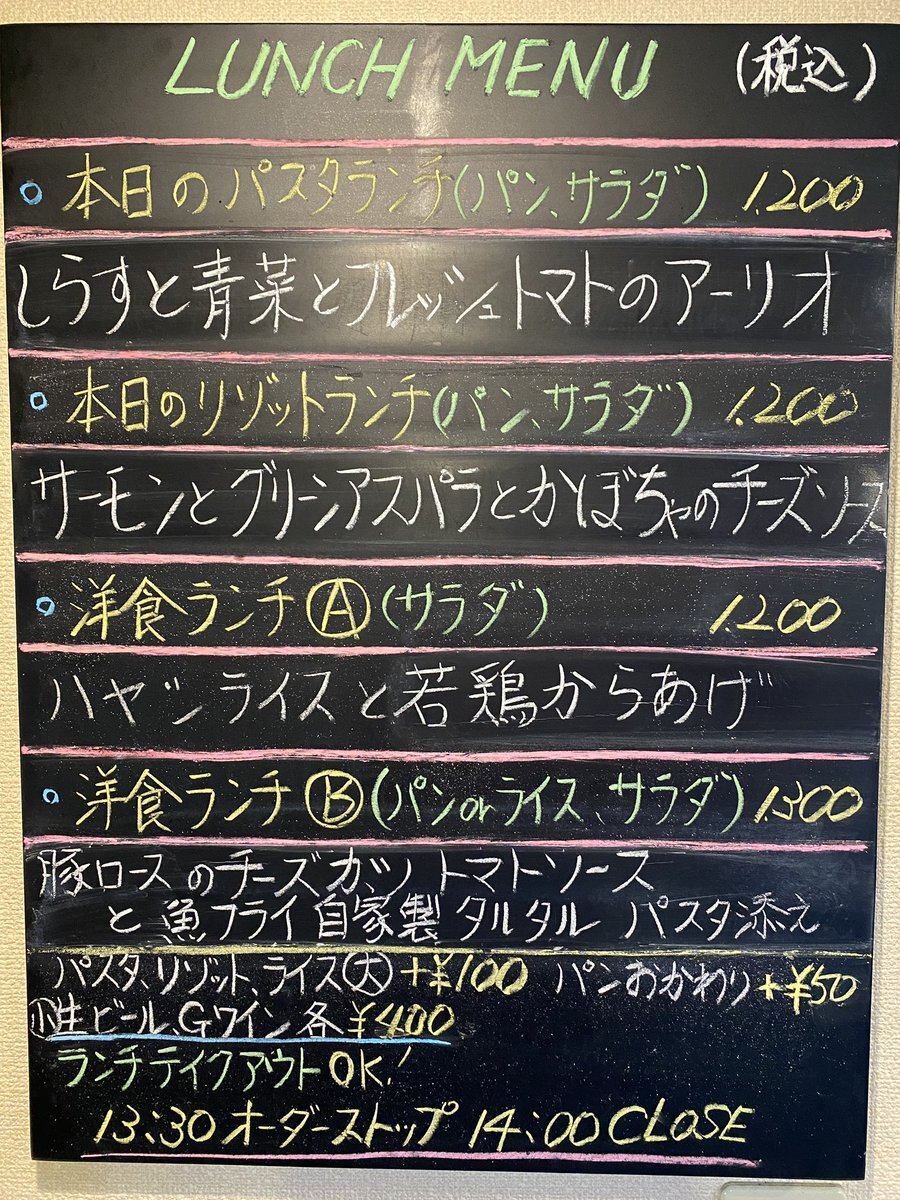 LUNCH MENU (税込)
本日のパスタランチ(パン、サラダ) 1.200
しらすと青菜とフレッシュトマトのアーリオ
本日のリゾットランチ(パン、サラダ) 1.200
サーモンとグリーンアスパラとかぼちゃのチーズソース
洋食ランチⒶ(サラダ) 1.200
ハヤシライスと若鶏からあげ
洋食ランチⒷ(パンorライス、サラダ) 1.300
豚ロースのチーズカツ トマトソース
と魚フライ自家製タルタル パスタ添え
パスタ、リゾット、ライス㊅ +¥100 パンおかわり+¥50
㊙生ビール、Gワイン各¥400
ランチテイクアウトOK!
13:30オーダーストップ 14:00 CLOSE